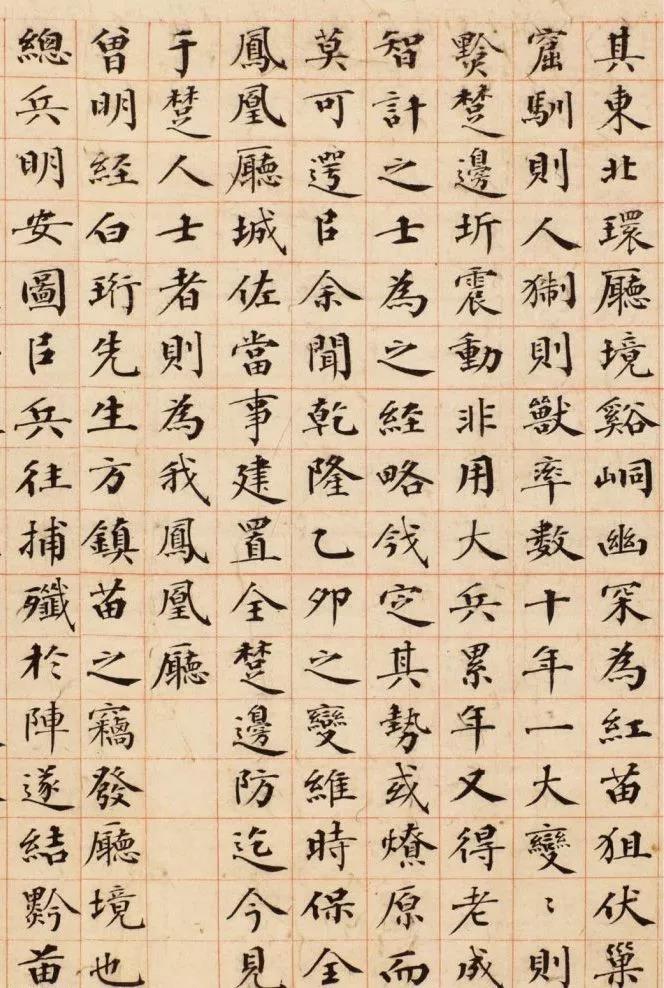 其東北環厛境谿峒幽罙為紅苗狙伏巢
窟馴則人猘則獸率數十年一大變〻則
黔楚邊圻震動非用大兵累年又得老成
智計之士為之経略㦲定其勢或燎原而
莫可遌吕余聞乾隆乙夘之變維時保全
鳳凰厛城佐當事建置全楚邊防迄今見
于楚人士者則為我鳳凰厛
曾明経白珩先生方鎮苗之竊發厛境也
總兵明安圖吕兵往捕殲於陣遂結黔苗